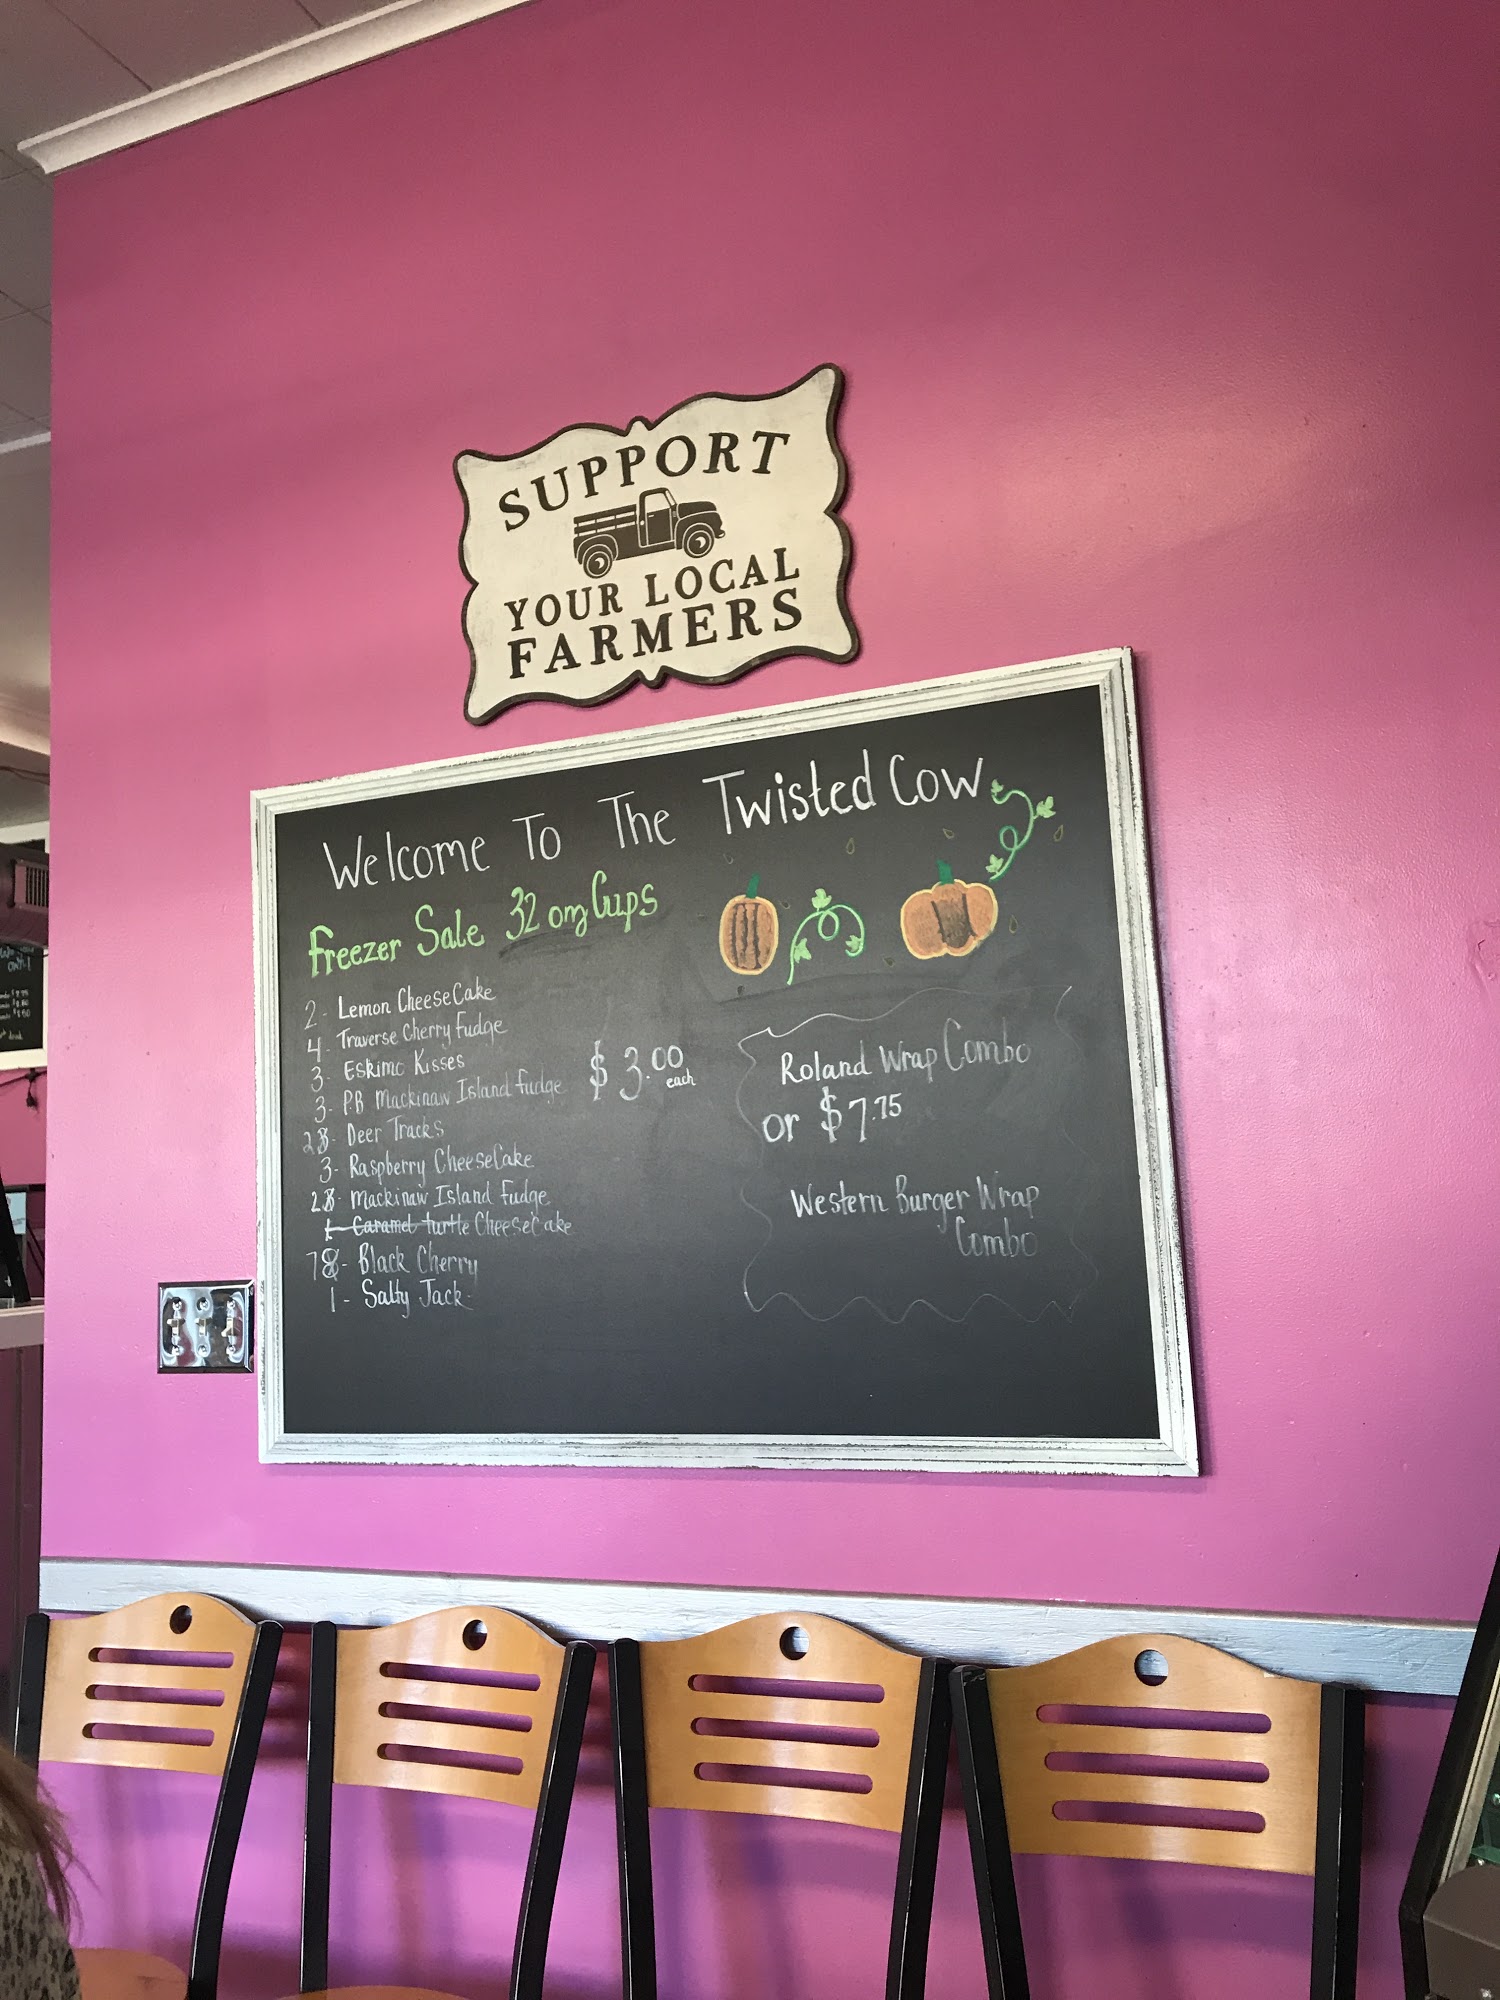 SUPPORT
YOUR LOCAL
FARMERS
Welcome To The Twisted Cow
Freezer Sale 32 Cups
2- Lemon CheeseCake
4- Traverse Cherry Fudge
3- Eskimo Kisses
3- P.B Mackinaw Island fudge
$3.00 each
2 - Deer Tracks
3- Raspberry CheeseCake
2 - Mackinaw Island fudge
1- Caramel turtle CheeseCake
7 - Black Cherry
1- Salty Jack
Roland Wrap Combo
or $7.75
Western Burger Wrap
Combo